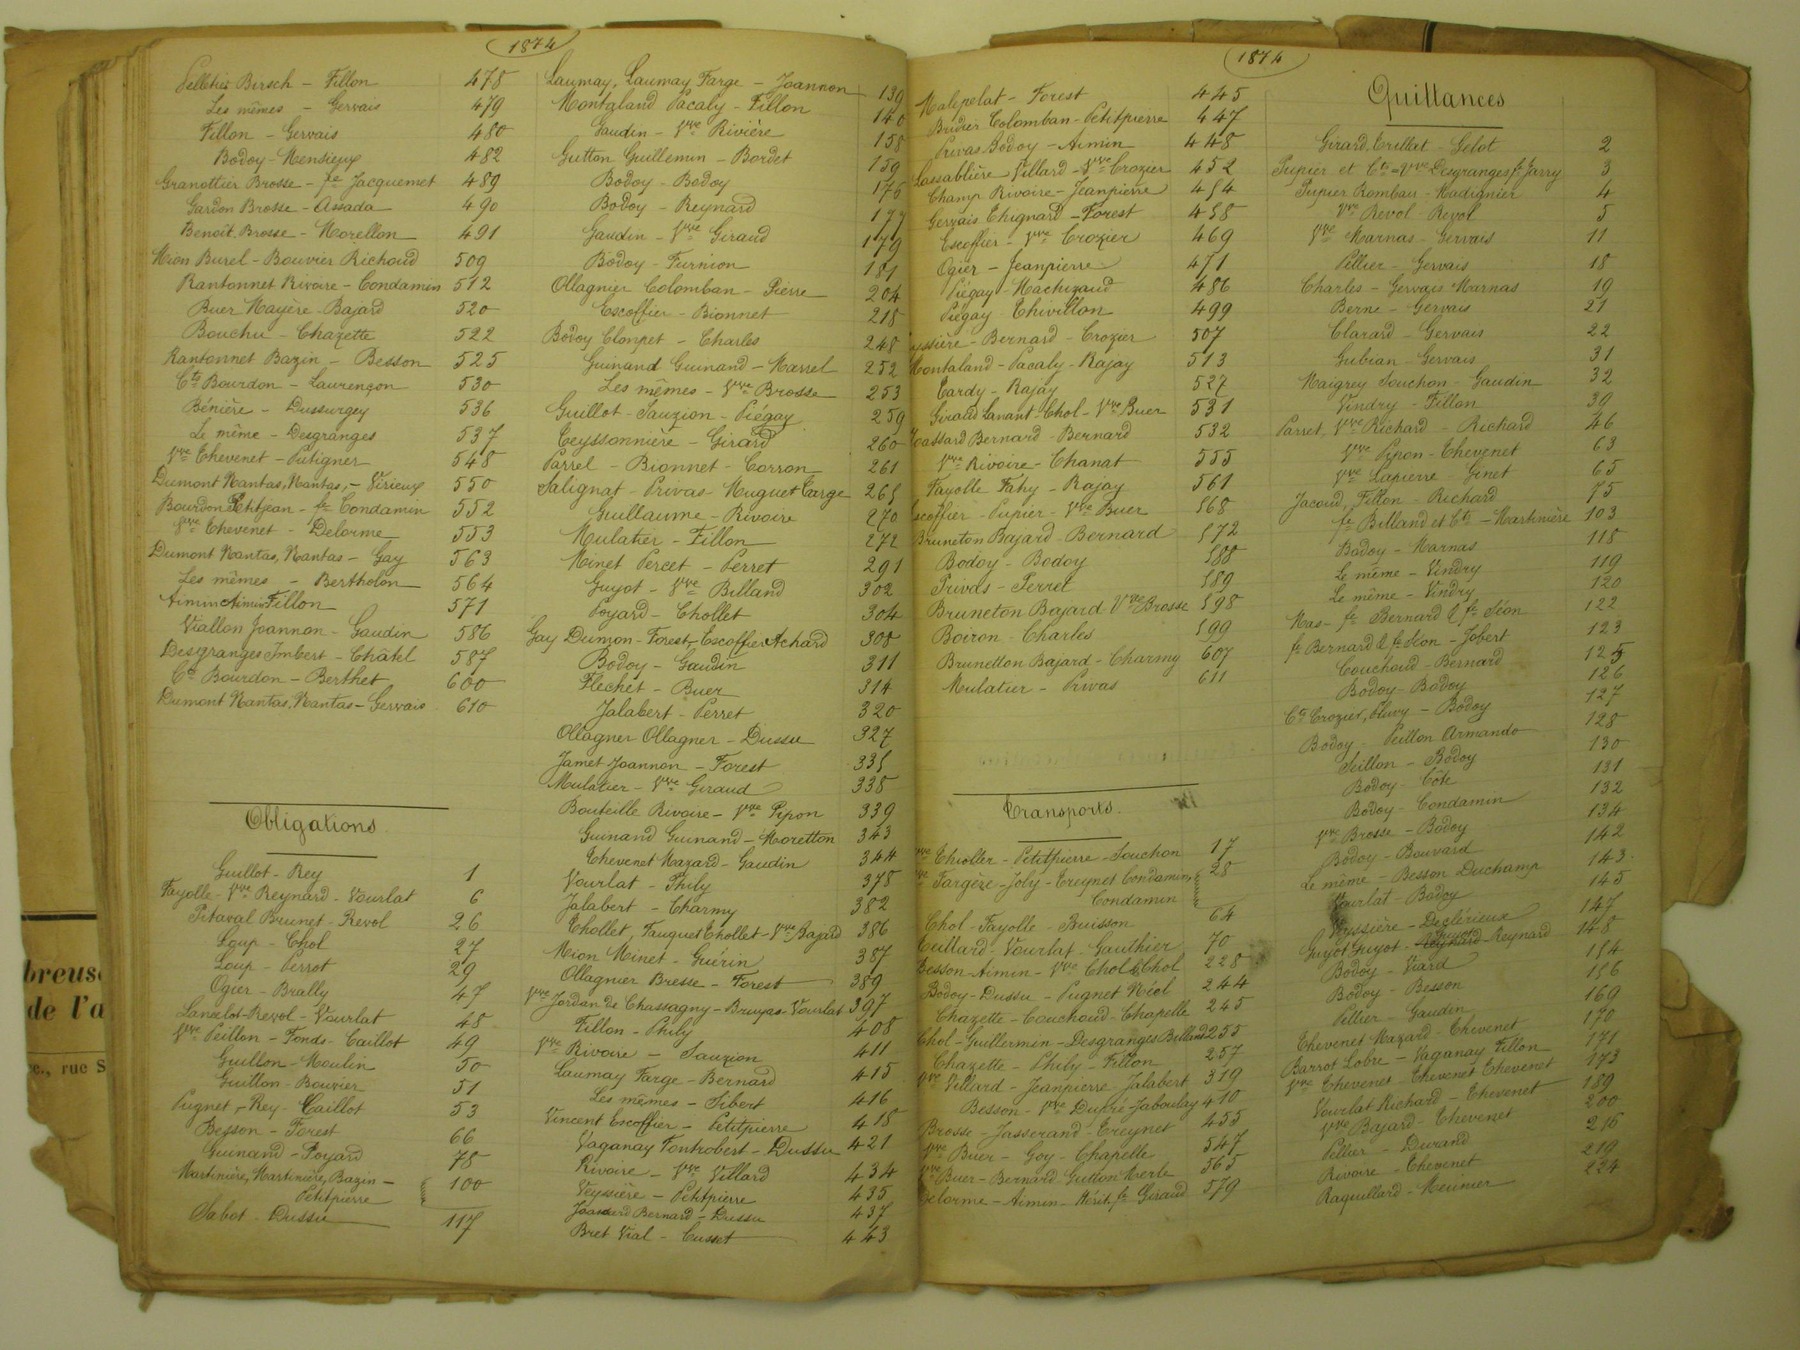 1874
Pelletier Birsch - Fillon 478
Les mêmes - Gervais 479
Fillon - Gervais 480
Bodoy - Mensieux 482
Granottier Brosse - fe Jacquemet 489
Gardon Brosse - Assada 490
Benoît Brosse - Morellon 491
Mion Burel - Bouvier Richoud 509
Rantonnet Rivoire - Condamin 512
Buer Mayère - Bajard 520
Bouchu - Chazette 522
Rantonnet Bazin - Besson 525
Cts Bourdon - Laurençon 530
Bénière - Dussurgey 536
Le même - Desgranges 537
Vve Thevenet - Putigner 548
Dumont Nantas, Nantas, - Virieux 550
Bourdon Petitjean - fe Condamin 552
Vve Thevenet - Delorme 553
Dumont Nantas, Nantas - Gay 563
Les mêmes - Bertholon 564
Aimin Aimin Fillon 571
Viallon Joannon - Gaudin 586
Desgranges Imbert - Châtel 587
Cts Bourdon - Berthet 600
Dumont Nantas, Nantas - Gervais 610
Obligations
Guillot - Rey 1
Fayolle - Vve Reynard - Vourlat 6
Pitaval Brunet - Revol 26
Loup - Chol 27
Loup - Perrot 29
Ogier - Brally 47
Lancelot - Revol - Vourlat 48
Vve Peillon - Fonds - Caillot 49
Guillon - Moulin 50
Guitton - Bouvier 51
Pugnet - Rey - Caillot 53
Besson - Forest 66
Guinand - Poyard 78
Martinière, Martinière, Bazin -
Petitpierre 100
Sabot - Dussu 117
Laumay, Laumay Farge - Joannon 139
Montaland Pacaly - Fillon 140
Gaudin - Vve Rivière 158
Gutton Guillemin - Bordet 159
Bodoy - Bodoy 176
Bodoy - Reynard 177
Gaudin - Vve Giraud 179
Bodoy - Furnion 181
Ollagnier Colomban - Pierre 204
Escoffier - Bionnet 218
Bodoy Clonpet - Charles 248
Guinand Guinand - Marrel 252
Les mêmes - Vve Brosse 253
Guillot - Sauzion - Piégay 259
Teyssonnière - Girard 260
Parrel - Bionnet - Corron 261
Salignat - Privas - Muguet Targe 265
Guillaume - Rivoire 270
Mulatier - Fillon 272
Minet Percet - Perret 291
Guyot - Vve Billand 302
Poyard - Chollet 304
Gay Dumon - Forest, Escoffier Achard 308
Bodoy - Gaudin 311
Flechet - Buer 314
Jalabert - Perret 320
Ollagner Ollagner - Dussu 327
Jamet Joannon - Forest 335
Mulatier - Vve Giraud 338
Bouteille Rivoire - Vve Pipon 339
Guinand Guinand - Moretton 343
Thevenet Mazard - Gaudin 344
Vourlat - Phily 378
Jalabert - Charmy 382
Chollet, Fauquet Chollet - Vve Bajard 386
Mion Minet - Guérin 387
Ollagnier Bresse - Forest 389
Vve Jordan de Chassagny - Bruyas - Vourlat 397
Fillon - Phily 408
Vve Rivoire - Sauzion 411
Laumay Farge - Bernard 415
Les mêmes - Sibert 416
Vincent Escoffier - Petitpierre 418
Vaganay Fontrobert - Dussu 421
Rivoire - Vve Villard 434
Veyssière - Petitpierre 435
Joassard Bernard - Dussu 437
Bret Vial - Cusset 443
1874
Malepelat - Forest 445
Bridier Colomban - Petitpierre 447
Privas Bodoy - Aimin 448
Lassablière Villard - Vve Crozier 452
Champ Rivoire - Jeanpierre 454
Gervais Thignard - Forest 458
Escoffier - Vve Crozier 469
Ogier - Jeanpierre 471
Piégay - Machizaud 486
Piégay - Thivillon 499
Bernard - Crozier 507
Montaland - Pacaly - Rajay 513
Tardy - Rajay 527
Giraud Lavant - Chol - Vve Buer 531
Joassard Bernard - Bernard 532
Vve Rivoire - Chanat 555
Fayolle Fahy - Rajay 561
Escoffier - Pupier - Vve Buer 568
Bruneton Bajard - Bernard 572
Bodoy - Bodoy 588
Privas - Perret 589
Bruneton Bajard Vve Brosse 598
Boiron - Charles 599
Brunetton Bajard - Charmy 607
Mulatier - Privas 611
Transports
Vve Thiollier - Petitpierre - Souchon 17
Vve Fargère - Joly - Treynet Condamin,
Condamin 28
Chol - Fayolle - Buisson 64
Cuillard - Vourlat - Gauthier 70
Besson - Aimin - Vve Chol & Chol 228
Bodoy - Dussu - Pugnet Néol 244
Chazette - Couchoud - Chapelle 245
Chol - Guillermin - Desgranges Billand 255
Chazette - Phily - Fillon 257
Vve Villard - Jeanpierre - Jalabert 319
Besson - Vve Dupré - Jaboulay 410
Brosse - Jasserand - Treynet 455
Vve Buer - Goy - Chapelle 547
Vve Buer - Bernard Gutton Merle 565
Delorme - Aimin - Mérit, fe Giraud 579
Quittances
Girard, Trillat - Selot 2
Pupier et Cts = Vve Desgranges fe Jarry 3
Pupier Rombau - Madignier 4
Vve Revol - Revol 5
Vve Marnas - Gervais 11
Pellier - Gervais 18
Charles - Gervais Marnas 19
Berne - Gervais 21
Clarard - Gervais 22
Gubian - Gervais 31
Maigrey Souchon - Gaudin 32
Vindry - Fillon 39
Parret, Vve Richard - Richard 46
Vve Pipon - Thevenet 63
Vve Lapierre - Ginet 65
Jacoud, Fillon - Richard 75
fe Billand et Cts - Martinière 103
Badoy - Marnas 118
Le même - Vindry 119
Le même - Vindry 120
Mas - fe Bernard & fe Séon 122
fe Bernard & fe Séon - Jobert 123
Couchoud - Bernard 125
Bodoy - Bodoy 126
Cts Crozier, Fluvy - Bodoy 127
Bodoy - Peillon Armando 128
Peillon - Bodoy 130
Bodoy - Côte 131
Bodoy - Condamin 132
Vve Brosse - Bodoy 134
Bodoy - Bouvard 142
Le même - Besson Duchamp 143
Vourlat - Bodoy 145
Veyssière - Declérieux 147
Guyot Guyot - Reynard 148
Bodoy - Viard 154
Bodoy - Besson 156
Pellier - Gaudin 169
Thevenet Mazard - Thevenet 170
Barrot Lobre - Vaganay Fillon 171
Vve Thevenet - Thevenet Thevenet 173
Vourlat Richard - Thevenet 189
Vve Bajard - Thevenet 200
Pellier - Durand 216
Rivoire - Thevenet 219
Raquillard - Meunier 224
breus
de l'a
e., rue S